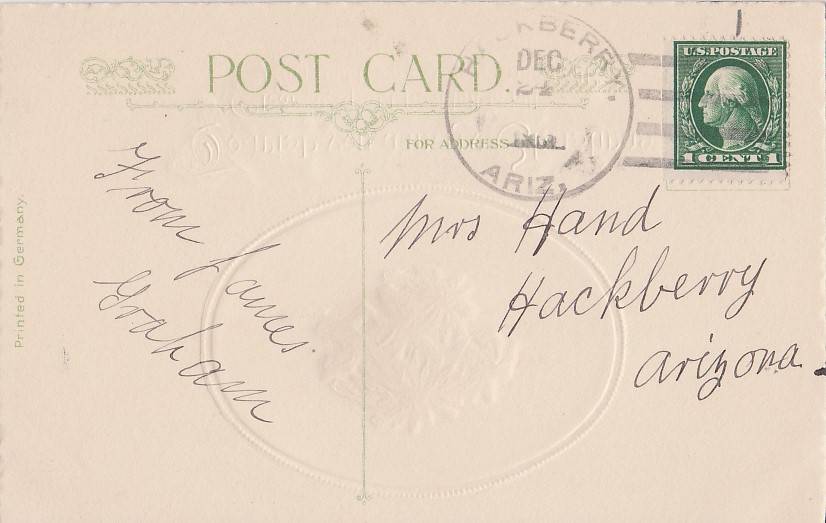 POST CARD.
FOR ADDRESS ONLY.
HACKBERRY.
DEC
24
ARIZ.
U.S. POSTAGE
1 CENT 1
From James
Graham
Mrs Hand
Hackberry
Arizona
Printed in Germany.